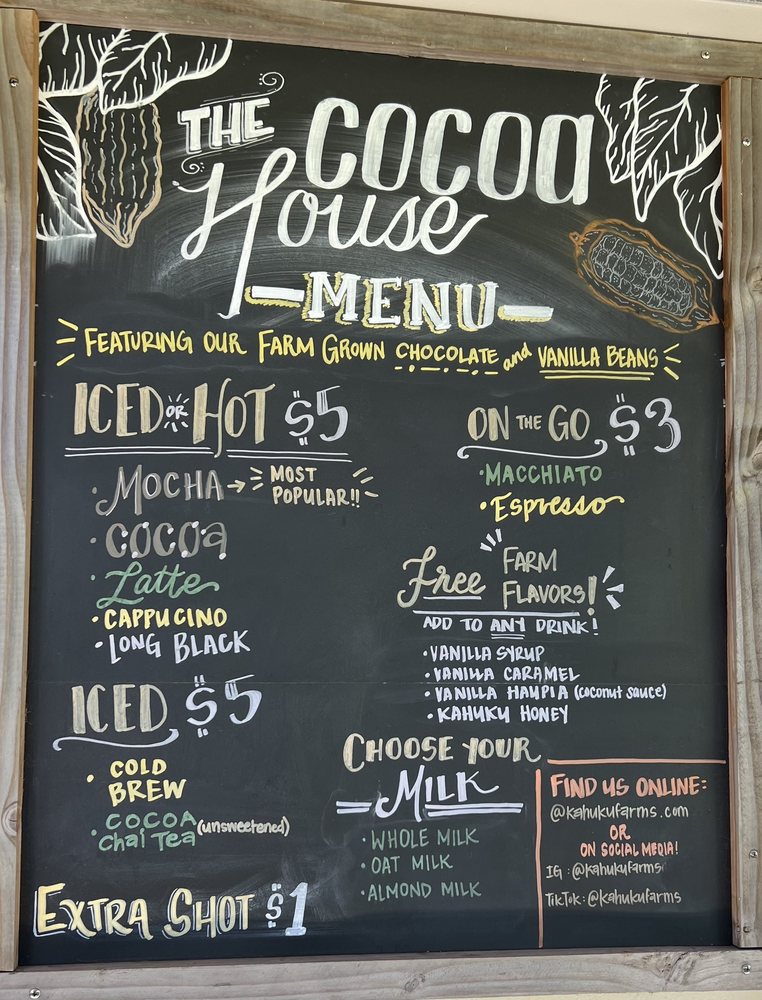 THE COCOA
House
-MENU-
FEATURING OUR FARM GROWN CHOCOLATE and VANILLA BEANS
ICED OR HOT $5
· MOCHA → MOST
POPULAR!!
· COCOA
· Latte
· CAPPUCINO
· LONG BLACK
ICED $5
· COLD
BREW
· COCOA
Chai Tea (unsweetened)
EXTRA SHOT $1
ON THE GO $3
· MACCHIATO
· Espresso
Free FARM
FLAVORS!
ADD TO ANY DRINK!
· VANILLA SYRUP
· VANILLA CARAMEL
· VANILLA HAUPIA (coconut sauce)
· KAHUKU HONEY
CHOOSE YOUR
MILK
· WHOLE MILK
· OAT MILK
· ALMOND MILK
FIND US ONLINE:
@kahukufarms.com
OR
ON SOCIAL MEDIA!
IG: @kahukufarms
TikTok: @kahukufarms